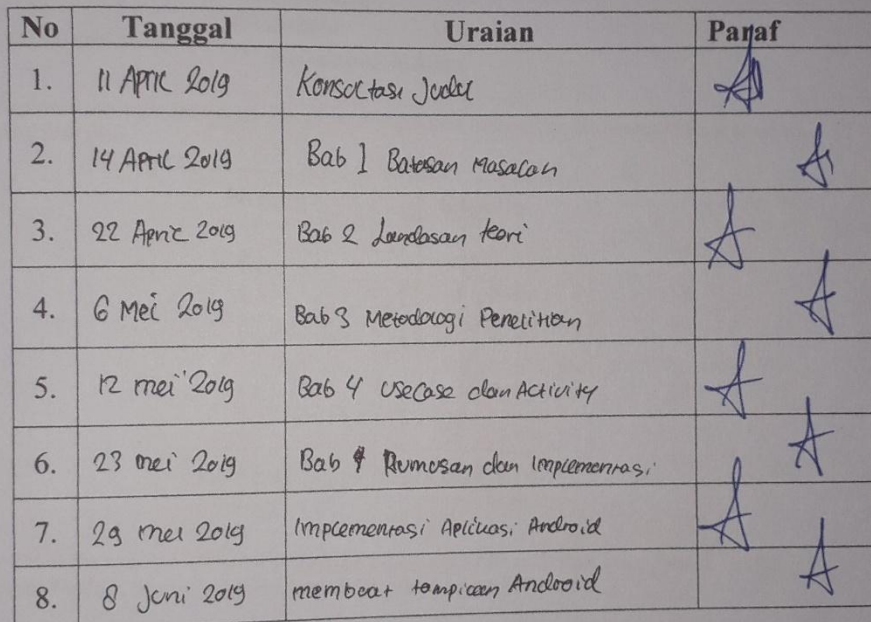 No Tanggal Uraian Paraf
1. 11 April 2019 Konsultasi Judul
2. 14 April 2019 Bab 1 Batasan Masalah
3. 22 April 2019 Bab 2 Landasan teori
4. 6 Mei 2019 Bab 3 Metodologi Penelitian
5. 12 mei 2019 Bab 4 Usecase dan Activity
6. 23 mei 2019 Bab 4 Rumusan dan Implementasi
7. 29 mei 2019 Implementasi Aplikasi Android
8. 8 Juni 2019 membuat tampilan Android